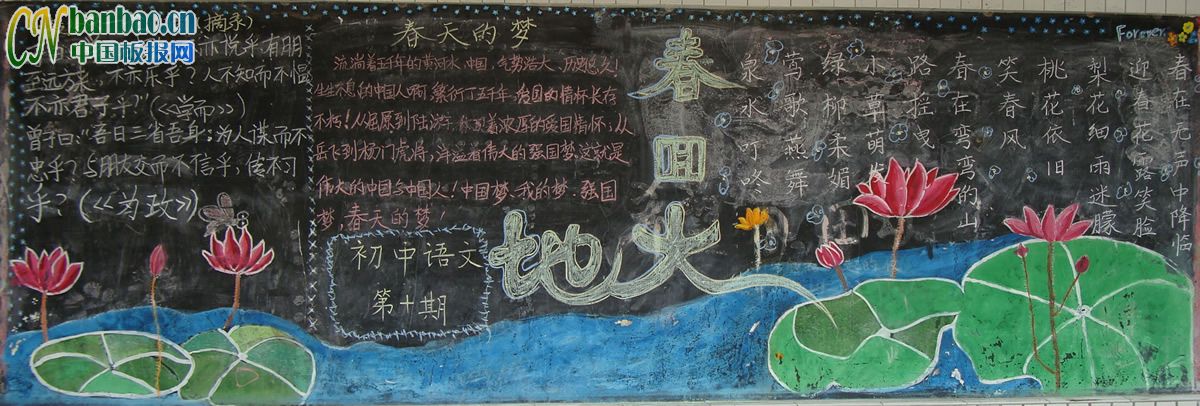 CN banbao.cn
中国板报网
(摘录)
亦悦乎?有朋
至远方来,不亦乐乎?人不知而不愠
不亦君子乎?(《学而》)
曾子曰:"吾日三省吾身:为人谋而不
忠乎?与朋友交而不信乎,传不习
乎?(《为政》)
春天的梦
流淌着五千年的黄河水,中国,气势浩大、历史悠久!
生生不息的中国人啊,繁衍了五千年,爱国的情怀长存
不朽!从屈原到陆游,着浓厚的爱国情怀;从
岳飞到杨门虎将,洋溢着伟人的强国梦,这就是
伟大的中国与中国人!中国梦、我的梦、强国
梦,春天的梦!
初中语文
第十期
春回大地
Forever
春在无声中降临
迎春花露笑脸
梨花细雨迷朦
桃花依旧
笑春风
春在弯弯的山
路摇曳
小草萌
绿柳柔媚
莺歌燕舞
泉水叮咚